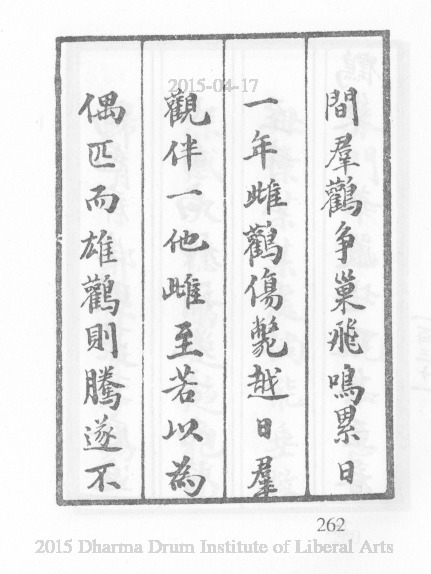 2015-04-17
間羣鸛争巢飛鳴累日
一年雌鸛傷斃越日羣
觀伴一他雌至若以為
偶匹而雄鸛則騰遂不
262
2015 Dharma Drum Institute of Liberal Arts